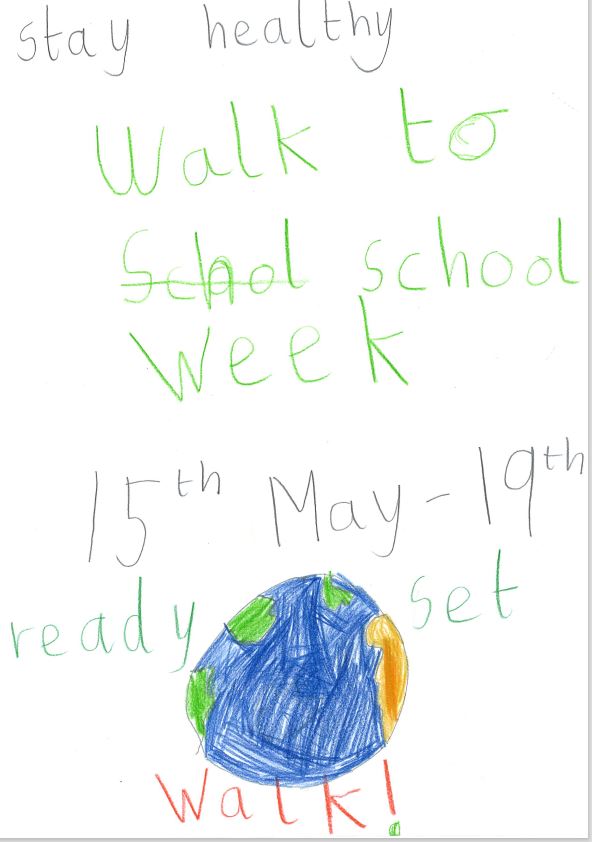 stay healthy
Walk to
Schol school
Week
15th May - 19th
ready set
Walk!